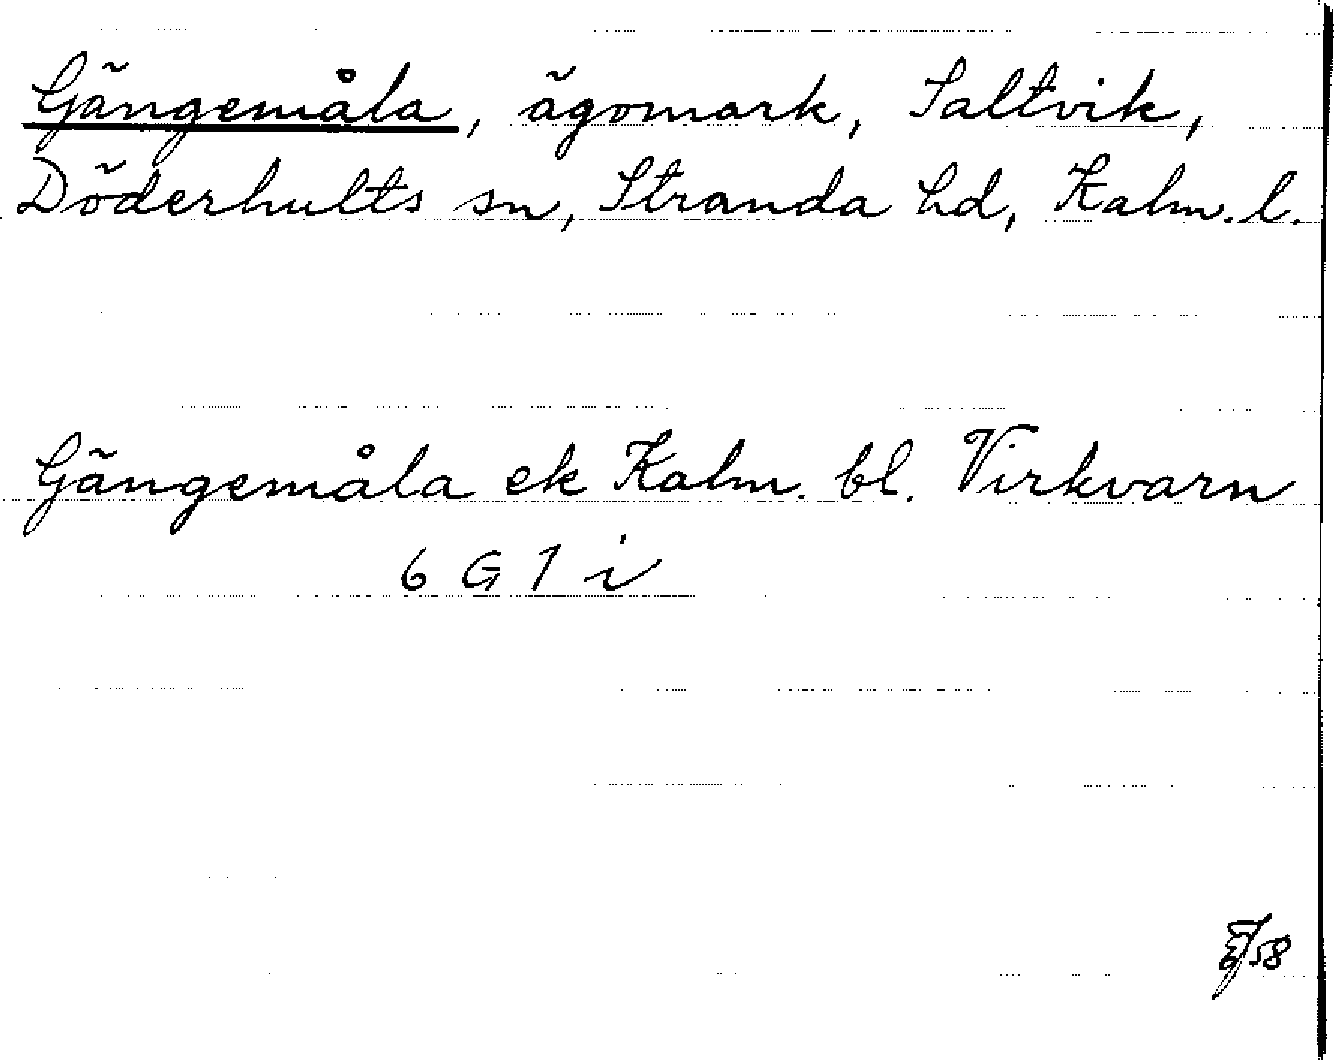 Gängemåla, ägomark, Saltvik,
Döderhults sn, Stranda hd, Kalm. l.
Gängemåla ek Kalm. bl. Virkvarn
6 G 1 i
58